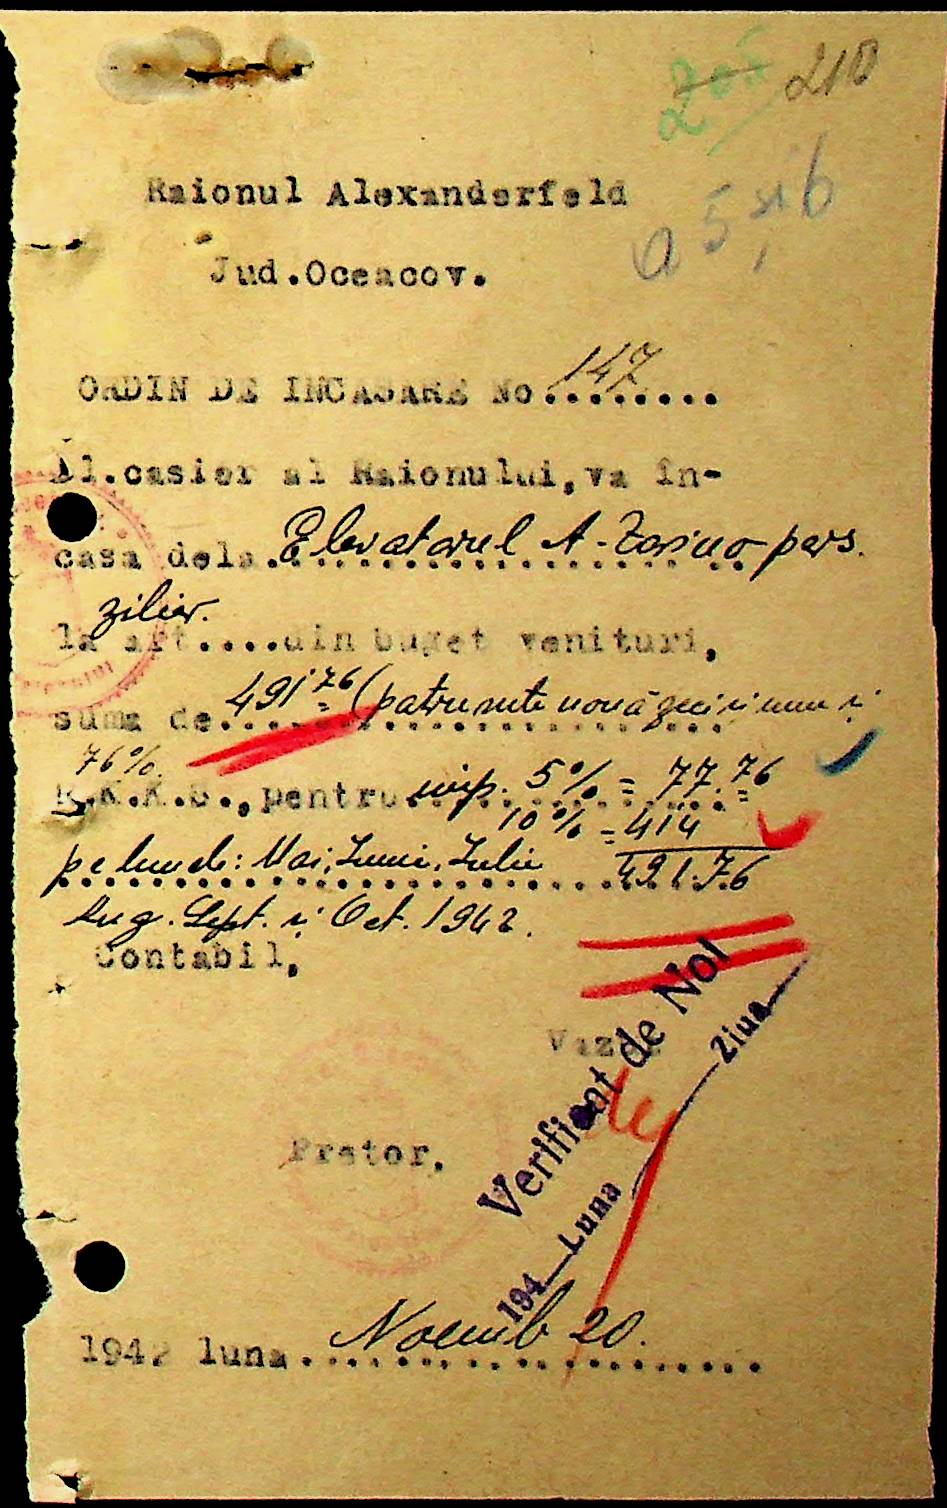 205 210
a 5, și 6
Raionul Alexanderfeld
Jud.Oceacov.
ORDIN DE INCASARE No 147........
Dl.casier al Raionului,va în-
casa dela Elevatorul A- pers.
zilier.
la art....din buget venituri,
suma de 491.76 (patru sute nouă zeci și unu și
76%.
R.K.K.S.,pentru imp. 5% = 77.76
10% = 414
pe lunele: Mai, Iunie, Iulie 491.76
Aug. Sept. și Oct. 1942.
Contabil,
Vazut
Verificat de Noi
Pretor,
194 Luna Ziua
1942 luna Noemb 20.